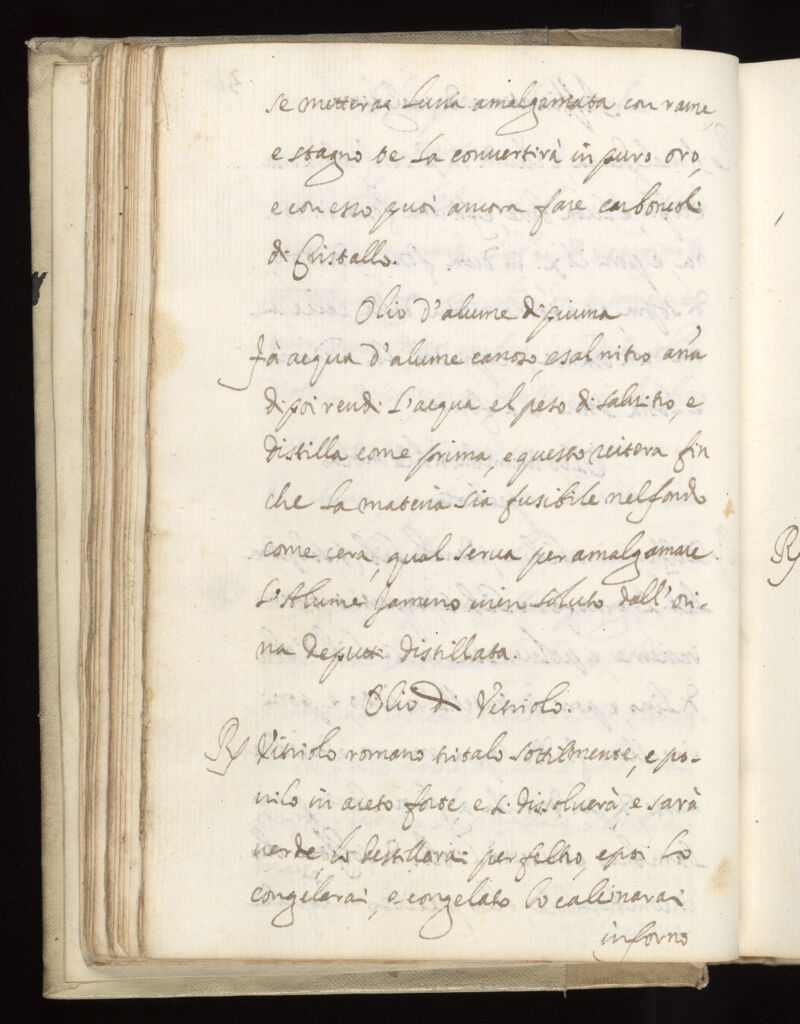 se metterai Luna amalgamata con rame,
e stagno te la convertirà in puro oro,
e con esso puoi ancora fare carboncoli
di Cristallo.
Olio d'alume di piuma
Fà acqua d'alume canoro, e sal nitro añа
di poi rendi l'acqua el peso di salnitro, e
distilla come prima, e questo reitera fin
che la materia sia fusibile nel fondo
come cera, qual serva per amalgamare.
L'Alume Jameno vien soluto dall'ori-
na de putti distillata.
Olio di Vitriolo.
R Vitriolo romano tritalo sottilmente, e po-
nilo in aceto forte, e si dissolverà, e sarà
verde, lo destillarai per feltro, e poi lo
congelarai, e congelato lo calcinarai
in forno
R